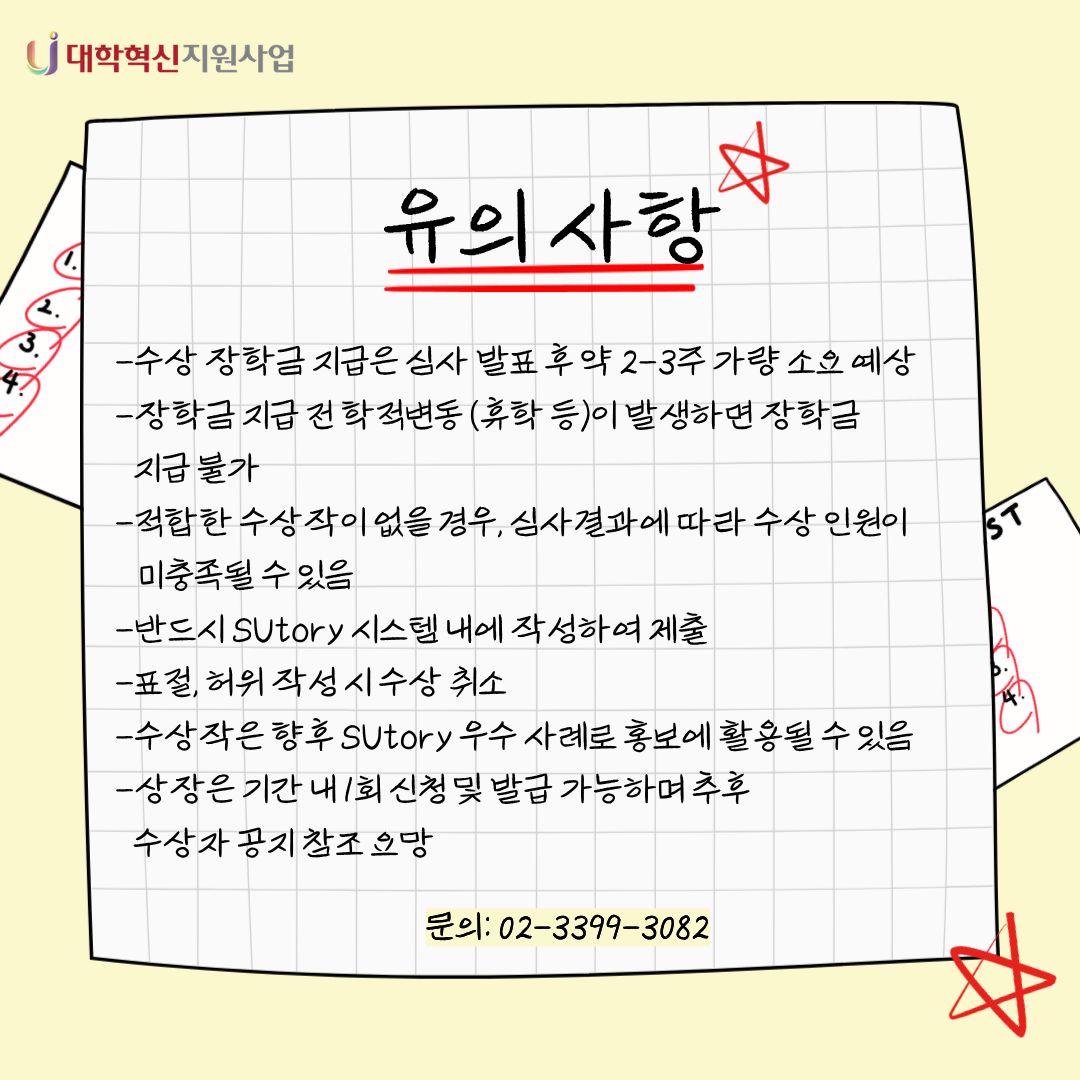 대학혁신지원사업
유의사항
-수상 장학금 지급은 심사 발표 후 약 2-3주 가량 소요 예상
-장학금 지급 전 학적변동 (휴학 등)이 발생하면 장학금
지급 불가
-적합한 수상작이 없을 경우, 심사결과에 따라 수상 인원이
미충족될 수 있음
-반드시 SUtory 시스템 내에 작성하여 제출
-표절, 허위 작성 시 수상 취소
-수상작은 향후 SUtory 우수 사례로 홍보에 활용될 수 있음
-상장은 기간 내 1회 신청 및 발급 가능하며 추후
수상자 공지 참조 요망
문의: 02-3399-3082
1.
2.
3.
4.
ST
4.